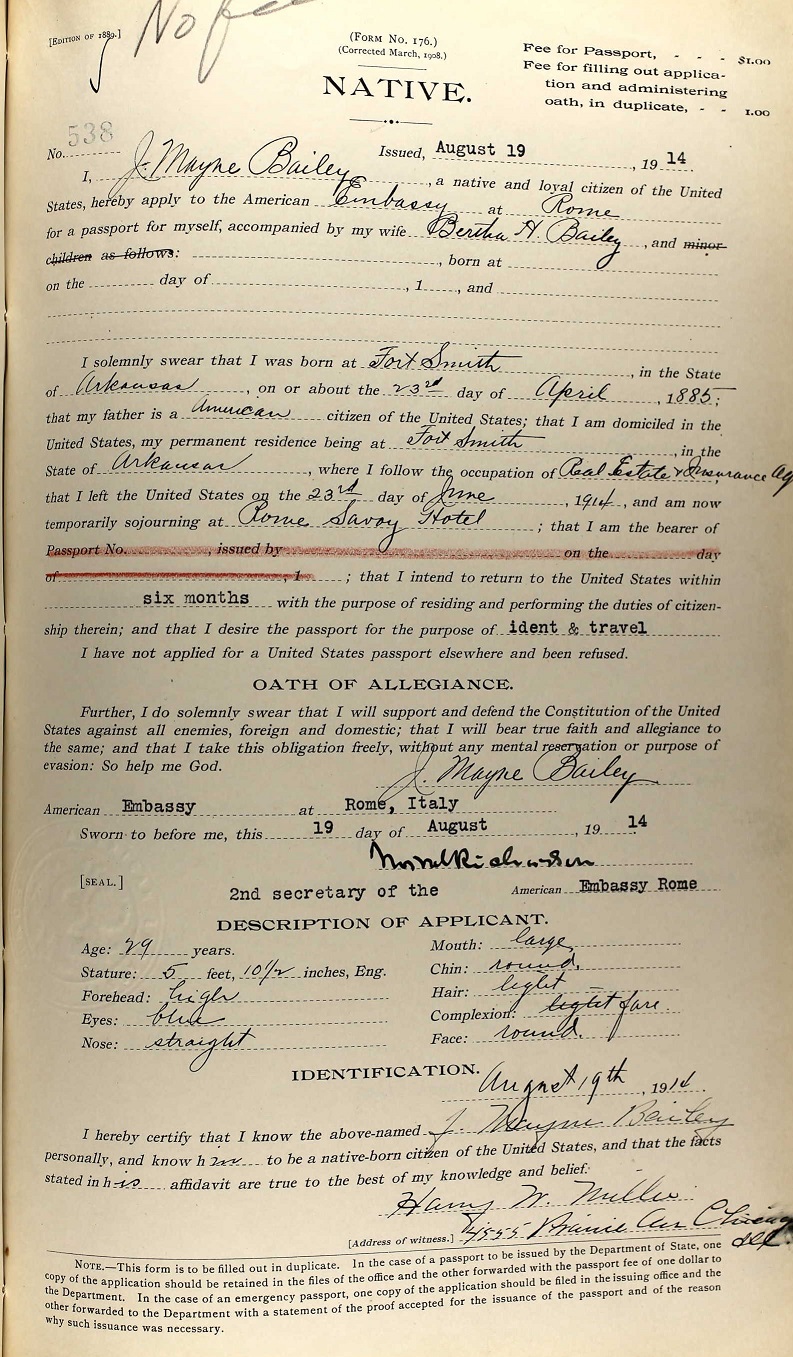 [EDITION OF 1889.]
No fee
(FORM NO. 176.)
(Corrected March, 1908.)
Fee for Passport, - - - $1.00
Fee for filling out applica-
tion and administering
oath, in duplicate, - - 1.00
NATIVE.
No. 538
Issued, August 19, 1914
I, J. Mayne Bailey, a native and loyal citizen of the United
States, hereby apply to the American Embassy at Rome
for a passport for myself, accompanied by my wife Bertha H. Bailey, and minor
children as follows: , born at
on the day of , 1 , and
I solemnly swear that I was born at Fort Smith, in the State
of Arkansas, on or about the 23rd day of April, 1885;
that my father is a American citizen of the United States; that I am domiciled in the
United States, my permanent residence being at Fort Smith, in the
State of Arkansas, where I follow the occupation of Real Estate & Insurance Ag
that I left the United States on the 23rd day of June, 1914, and am now
temporarily sojourning at Rome Savoy Hotel; that I am the bearer of
Passport No. , issued by on the day
of , 1 ; that I intend to return to the United States within
six months with the purpose of residing and performing the duties of citizen-
ship therein; and that I desire the passport for the purpose of ident & travel
I have not applied for a United States passport elsewhere and been refused.
OATH OF ALLEGIANCE.
Further, I do solemnly swear that I will support and defend the Constitution of the United
States against all enemies, foreign and domestic; that I will bear true faith and allegiance to
the same; and that I take this obligation freely, without any mental reservation or purpose of
evasion: So help me God.
J. Mayne Bailey
American Embassy at Rome, Italy
Sworn to before me, this 19 day of August, 19 14
Richardson
[SEAL.]
2nd secretary of the American Embassy Rome
DESCRIPTION OF APPLICANT.
Age: 29 years.
Mouth: large
Stature: 5 feet, 10 1/2 inches, Eng.
Chin: round.
Forehead: high
Hair: light
Eyes: blue
Complexion: light fare
Nose: straight
Face: round.
IDENTIFICATION.
August 19th, 1914.
I hereby certify that I know the above-named J Mayne Bailey
personally, and know him to be a native-born citizen of the United States, and that the facts
stated in his affidavit are true to the best of my knowledge and belief.
Harry W. Miller
[Address of witness.] 4555 Prairie Ave Chicago
Ill.
NOTE.—This form is to be filled out in duplicate. In the case of a passport to be issued by the Department of State, one
copy of the application should be retained in the files of the office and the other forwarded with the passport fee of one dollar to
the Department. In the case of an emergency passport, one copy of the application should be filed in the issuing office and the
other forwarded to the Department with a statement of the proof accepted for the issuance of the passport and of the reason
why such issuance was necessary.